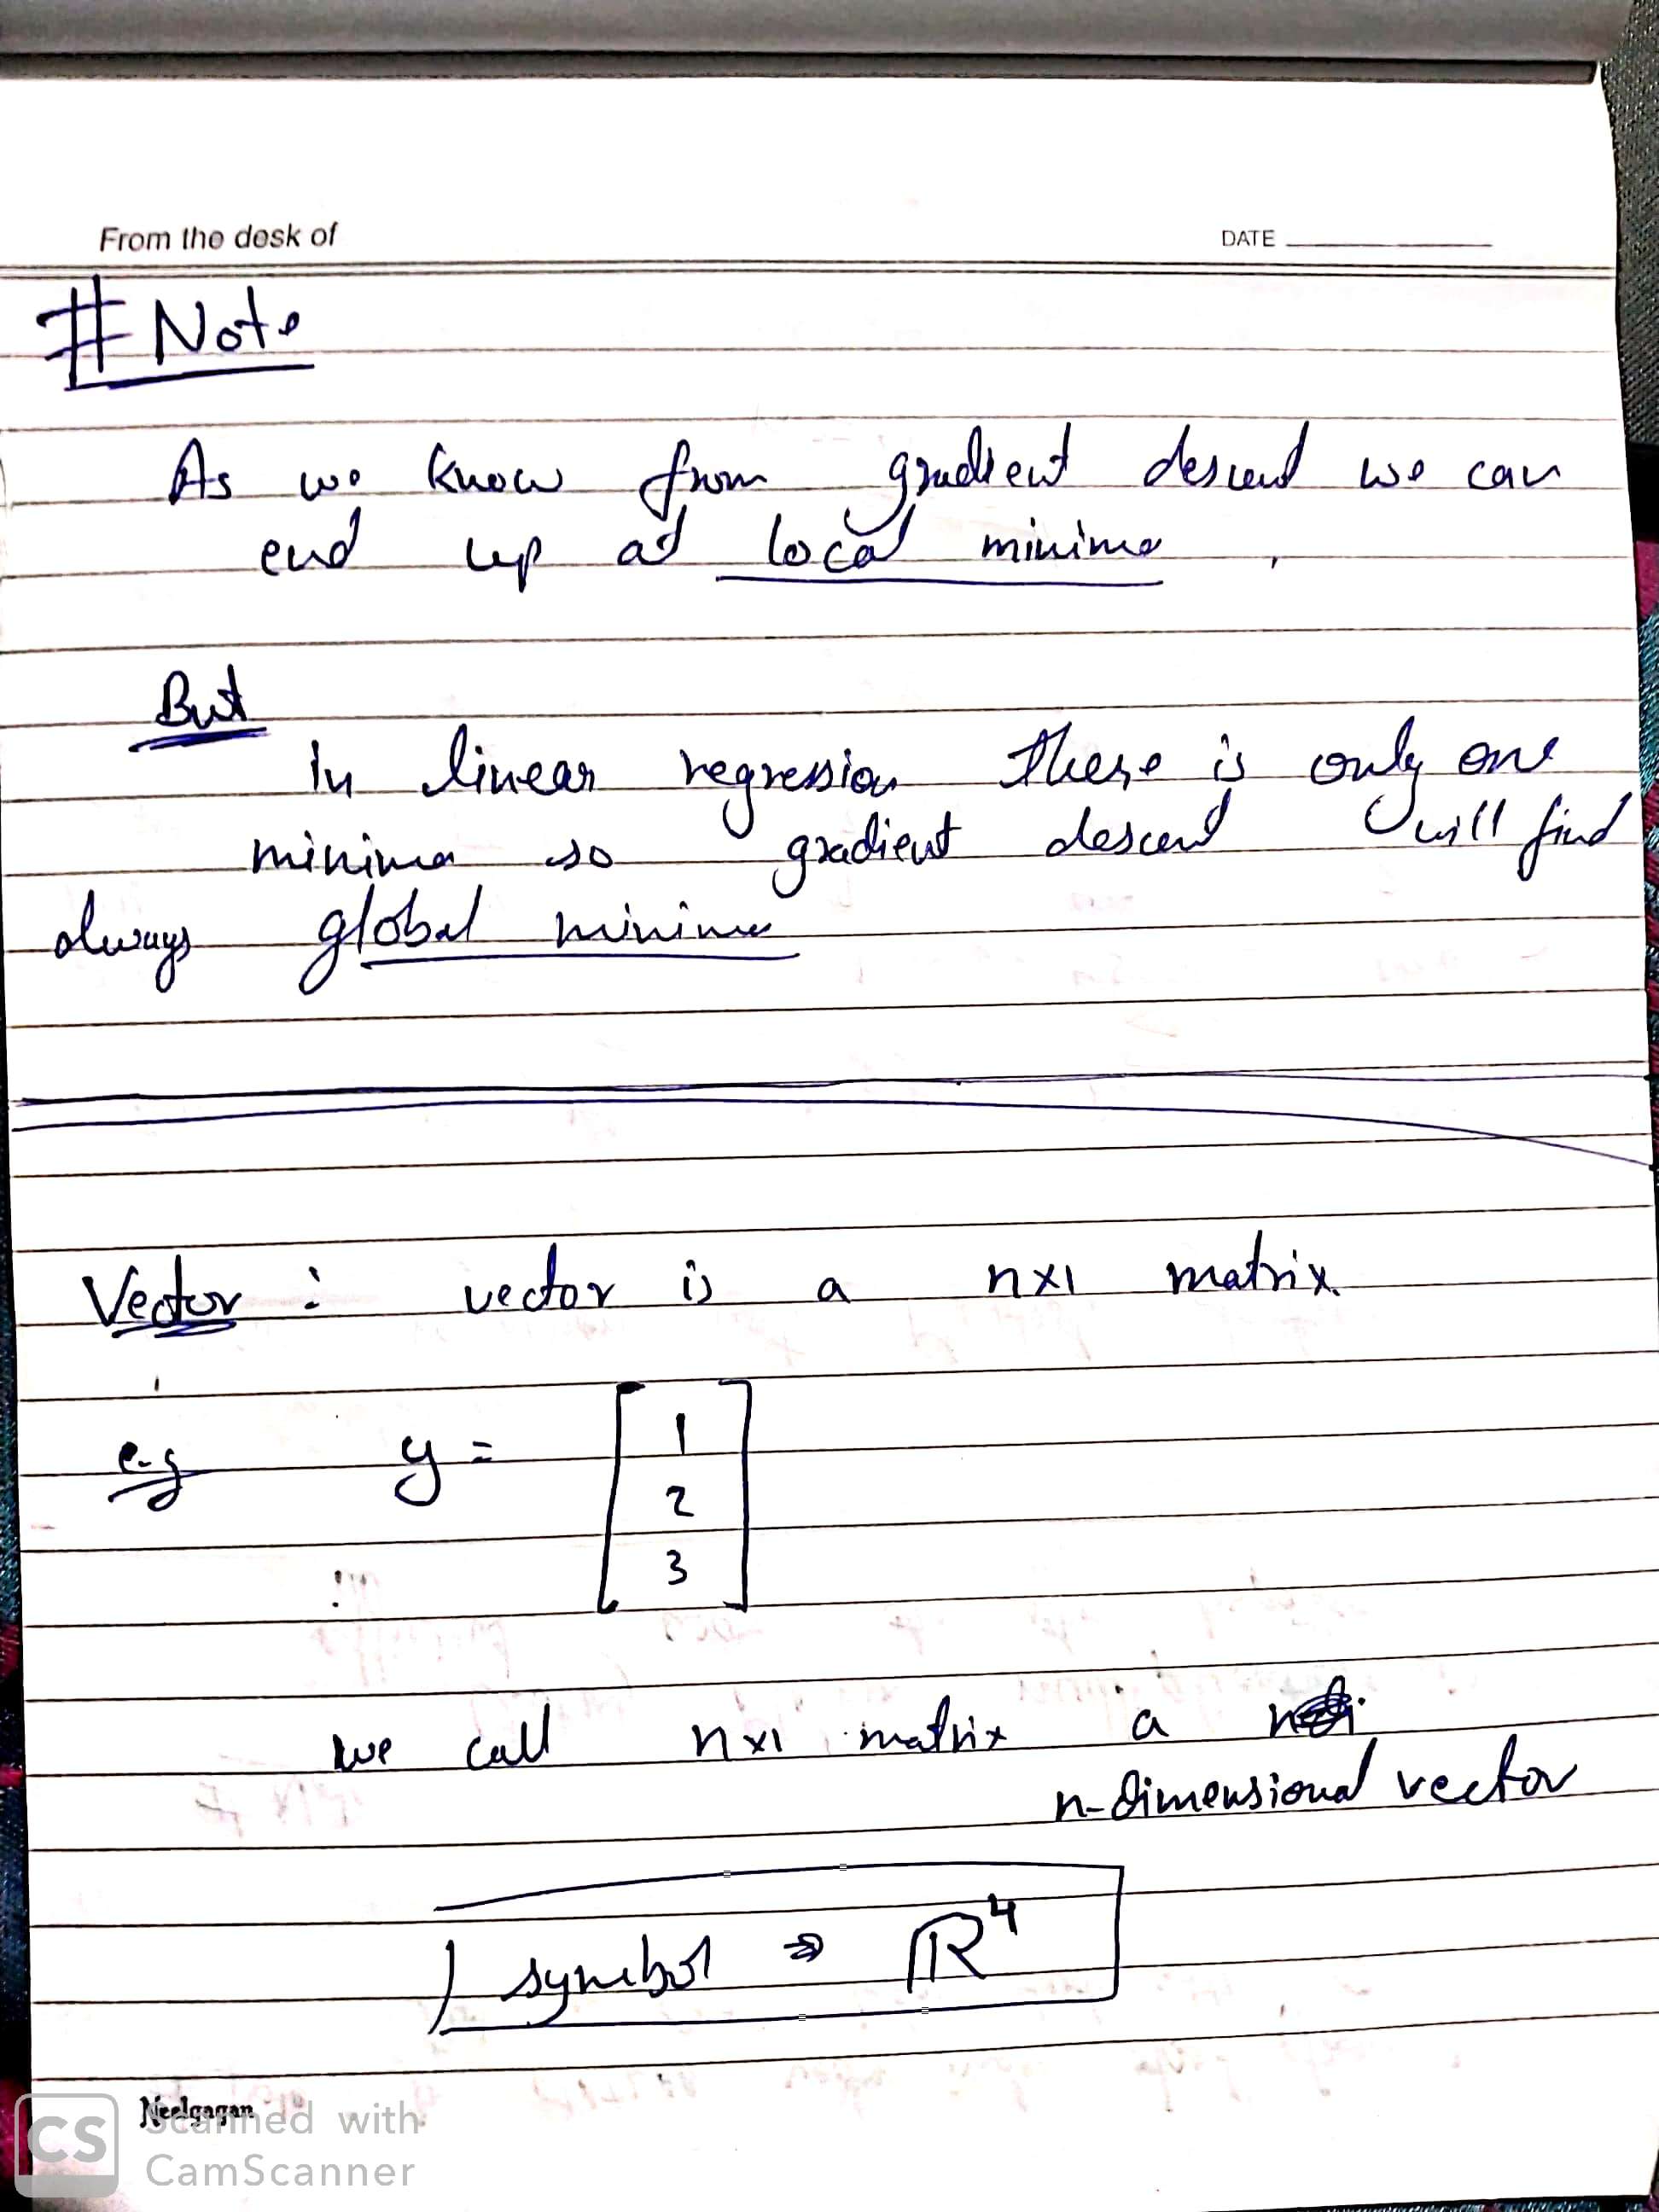 From the desk of
DATE
# Note
As we know from gradient descend we can
end up at local minima
But
In linear regression there is only one
minima so gradient descend will find
always global minima
Vector : vector is a n×1 matrix
e.g y = [ 1
2
3 ]
we call n×1 matrix a
n-dimensional vector
symbol ⇒ ℝ⁴
Neelgagan
CS Scanned with
CamScanner